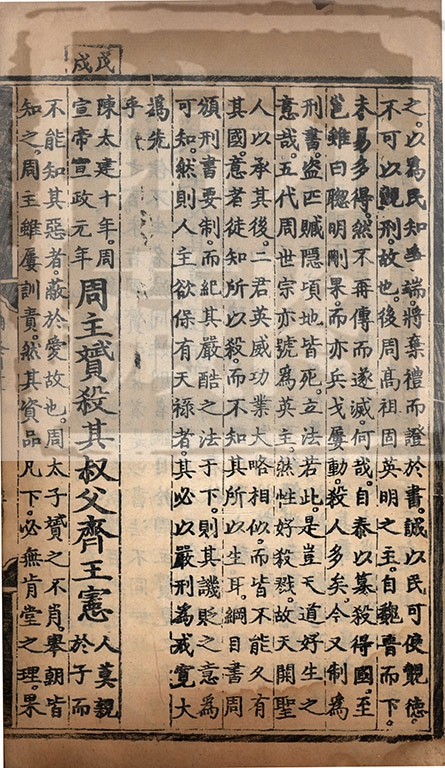 之。以爲民知爭端。將棄禮而證於書。誠以民可使覩德。
不可以覩刑。故也。後周高祖固英明之主。自魏晋而下。
未易多得。然不再傳而遂滅。何哉。自泰以篡殺得國。至
邕雖曰聰明剛果。而亦兵戈屢動。殺人多矣。今又制爲
刑書。盜匹贓隱頃地皆死。立法若此。是豈天道好生之
意哉。五代周世宗亦號爲英主。然性好殺戮。故天開聖
人以承其後。二君英威功業大略相似。而皆不能久有
其國。意者徒知所以殺。而不知其所以生耳。綱目書周
頒刑書要制。而紀其嚴酷之法于下。則其譏貶之意爲
可知。然則人主欲保有天祿者。其必以嚴刑爲戒。寬大
爲先
乎
戊戌
陳太建十年。周
宣帝宣政元年
周主贇殺其叔父齊王憲
人莫親
於子而
不能知其惡者。蔽於愛故也。周太子贇之不肖。舉朝皆
知之。周主雖屢訓責。然其資品凡下。必無肯堂之理。果